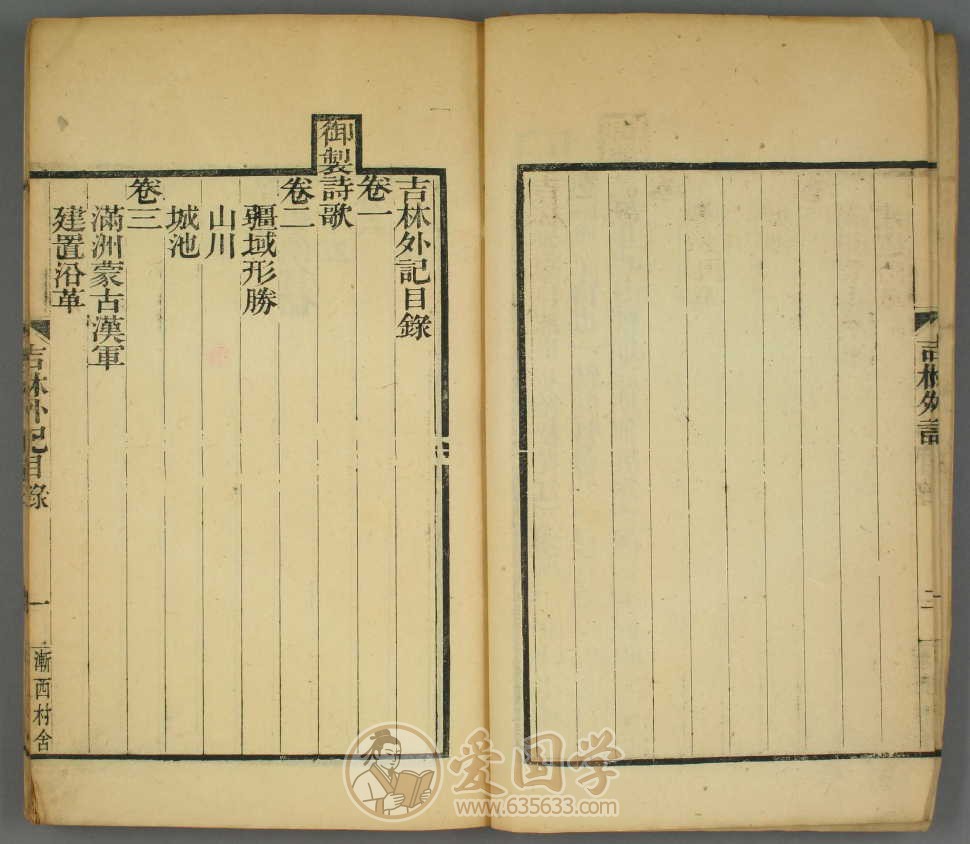 吉林外記
二
吉林外記目錄
卷一
御製詩歌
卷二
疆域形勝
山川
城池
卷三
滿洲蒙古漢軍
建置沿革
吉林外記目錄
一
漸西村舍
爱国学
www.635633.com